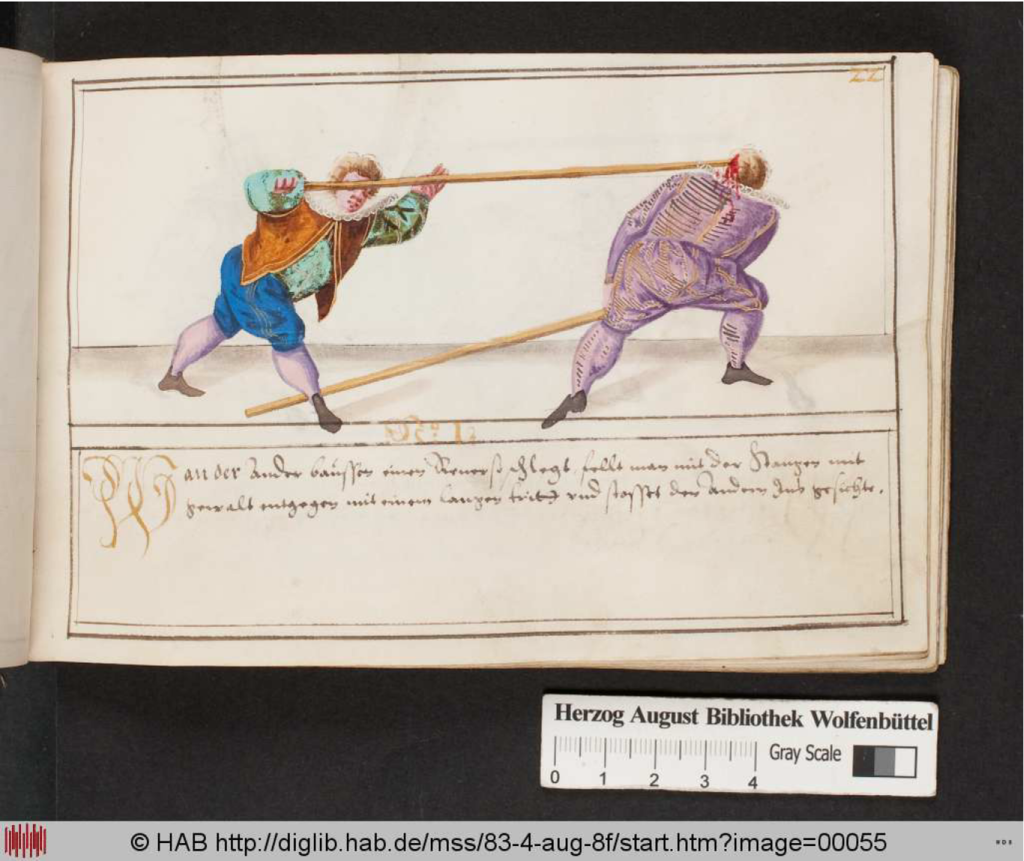 22
No 12
Wan der ander daussen einen Reverss schlegt, fellt man mit der Stangen mit
gewalt entgegen mit einem langen tritt vnd stosset den Andern Ins gesichte.
Herzog August Bibliothek Wolfenbüttel
Gray Scale
0 1 2 3 4
© HAB http://diglib.hab.de/mss/83-4-aug-8f/start.htm?image=00055